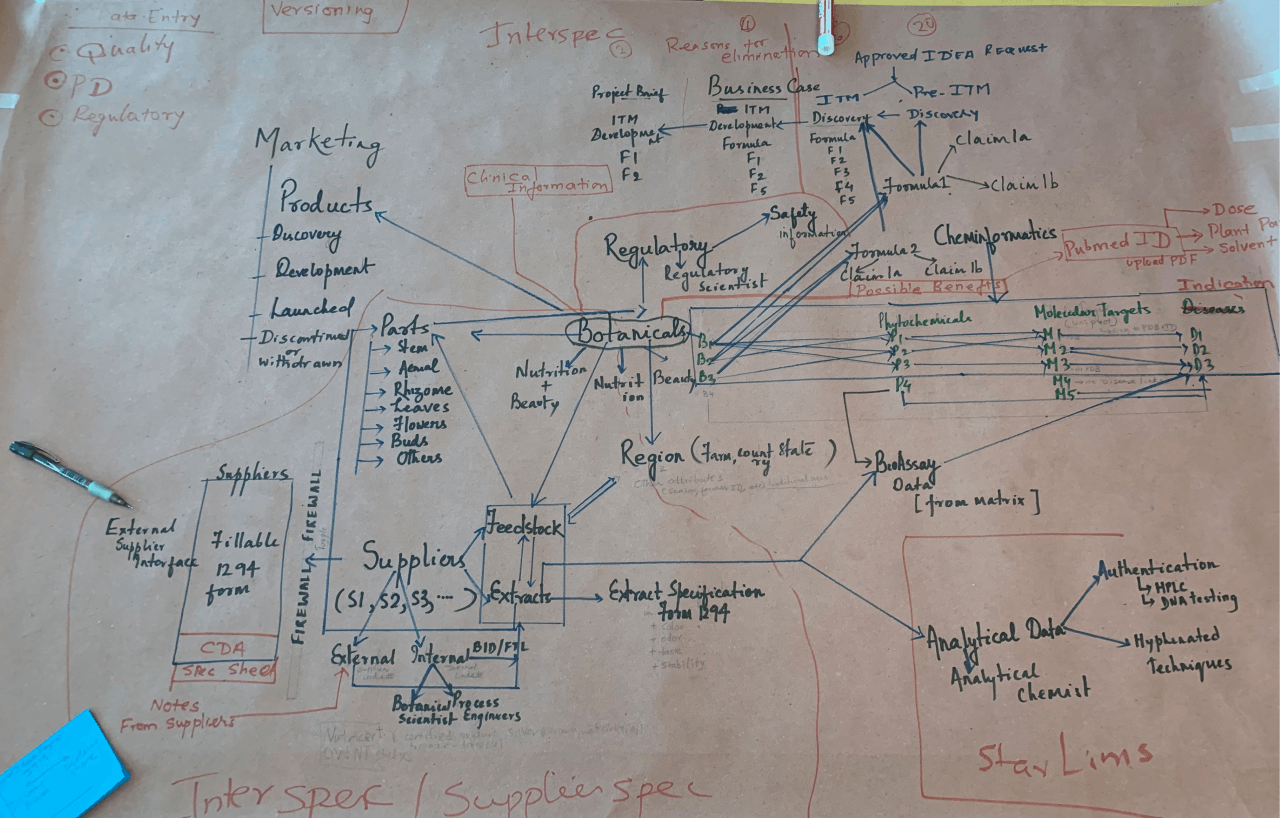 Data Entry
Quality
PD
Regulatory
Versioning
Interspec
Reasons for
elimination
2
4
20
Approved IDEA Request
ITM
Pre-ITM
Discovery
Discovery
Project Brief
ITM
Development
F1
F2
Business Case
ITM
Development
Formula
F1
F2
F5
Formula
F1
F2
F3
F4
F5
Formula 1
Claim 1a
Claim 1b
Formula 2
Claim 1a
Claim 1b
Possible Benefits
Cheminformatics
Pubmed ID
upload PDF
Dose
Plant Pa
Solvent
Marketing
Products
Discovery
Development
Launched
Discontinued
or
Withdrawn
Clinical
Information
Regulatory
Safety
information
Regulatory
Scientist
Botanicals
Nutrition
+
Beauty
Nutrit
ion
Beauty
B1
B2
B3
B4
Phytochemicals
P1
P2
P3
P4
Molecular Targets
(uniprot)
M1
M2
M3
M4
M5
Indication
Diseases
D1
D2
D3
Parts
Stem
Aerial
Rhizome
Leaves
Flowers
Buds
Others
Region (Farm, country State )
Other attributes
BioAssay
Data
[from matrix]
Suppliers
External
Supplier
Interface
Fillable
1294
form
CDA
Spec Sheet
Notes
From Suppliers
FIREWALL
FIREWALL
Suppliers
(S1, S2, S3, ... )
Feedstock
Extracts
Extract Specification
Form 1294
+ color
+ odor
+ taste
+ stability
External
Internal
BID/FTL
Botanical
Scientist
Process
Engineers
Analytical Data
Analytical
Chemist
Authentication
HPLC
DNA testing
Hyphenated
Techniques
Star Lims
Interspec / Supplierspec